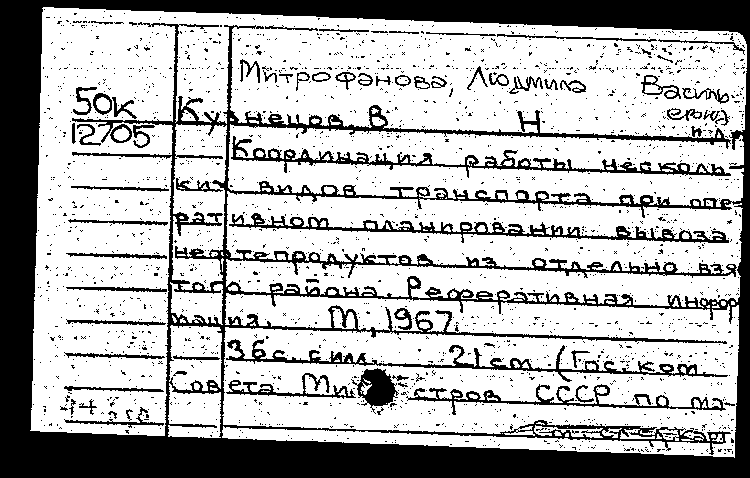 Митрофанова, Людмила Василь-
евна
50К Кузнецов, В Н и др
12705
Координация работы несколь-
ких видов транспорта при опе-
ративном планировании вывоза
нефтепродуктов из отдельно взя
того района. Реферативная инфор
мация. М, 1967.
36с. с илл. 21 см. (Гос. ком.
Совета Министров СССР по ма-
См. след. карт.